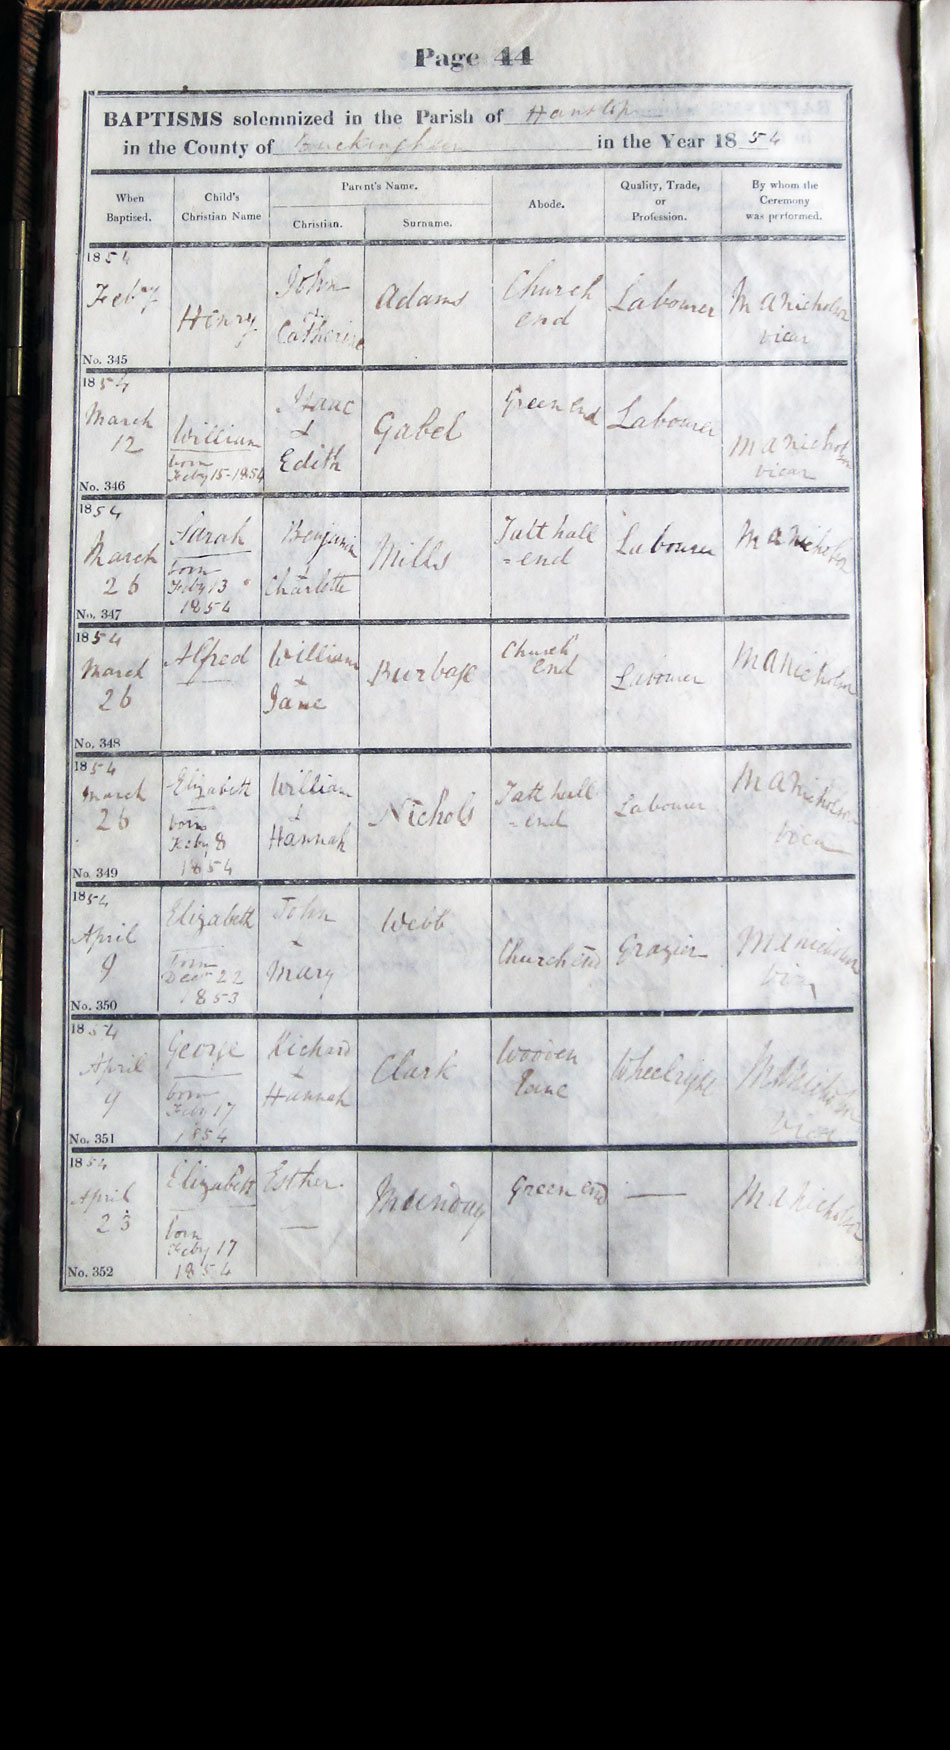 Page 44
BAPTISMS solemnized in the Parish of Hanslope
in the County of Buckingham in the Year 1854
When Baptised.
Child's Christian Name
Parent's Name.
Christian.
Surname.
Abode.
Quality, Trade, or Profession.
By whom the Ceremony was performed.
1854
Feby
Henry
John
&
Catherine
Adams
Church
end
Labourer
M A Nicholson
vicar
No. 345
1854
March
12
William
born
Feby 15-1854
Isaac
&
Edith
Gabel
Green end
Labourer
M A Nicholson
vicar
No. 346
1854
March
26
Sarah
born
Feby 13
1854
Benjamin
&
Charlotte
Mills
Tatt hall
=end
Labourer
M A Nicholson
No. 347
1854
March
26
Alfred
William
+
Jane
Burbage
Church
end
Labourer
M A Nicholson
No. 348
1854
March
26
Elizabeth
born
Feby 8
1854
William
&
Hannah
Nichols
Tatt hall
=end
Labourer
M A Nicholson
vicar
No. 349
1854
April
9
Elizabeth
born
Decr 22
1853
John
&
Mary
Webb
Church end
Grazier
M A Nicholson
vicar
No. 350
1854
April
9
George
born
Feby 17
1854
Richard
&
Hannah
Clark
Wooven
Lane
Wheelright
M A Nicholson
vicar
No. 351
1854
April
23
Elizabeth
born
Feby 17
1854
Esther
—
Munday
Green end
—
M A Nicholson
No. 352